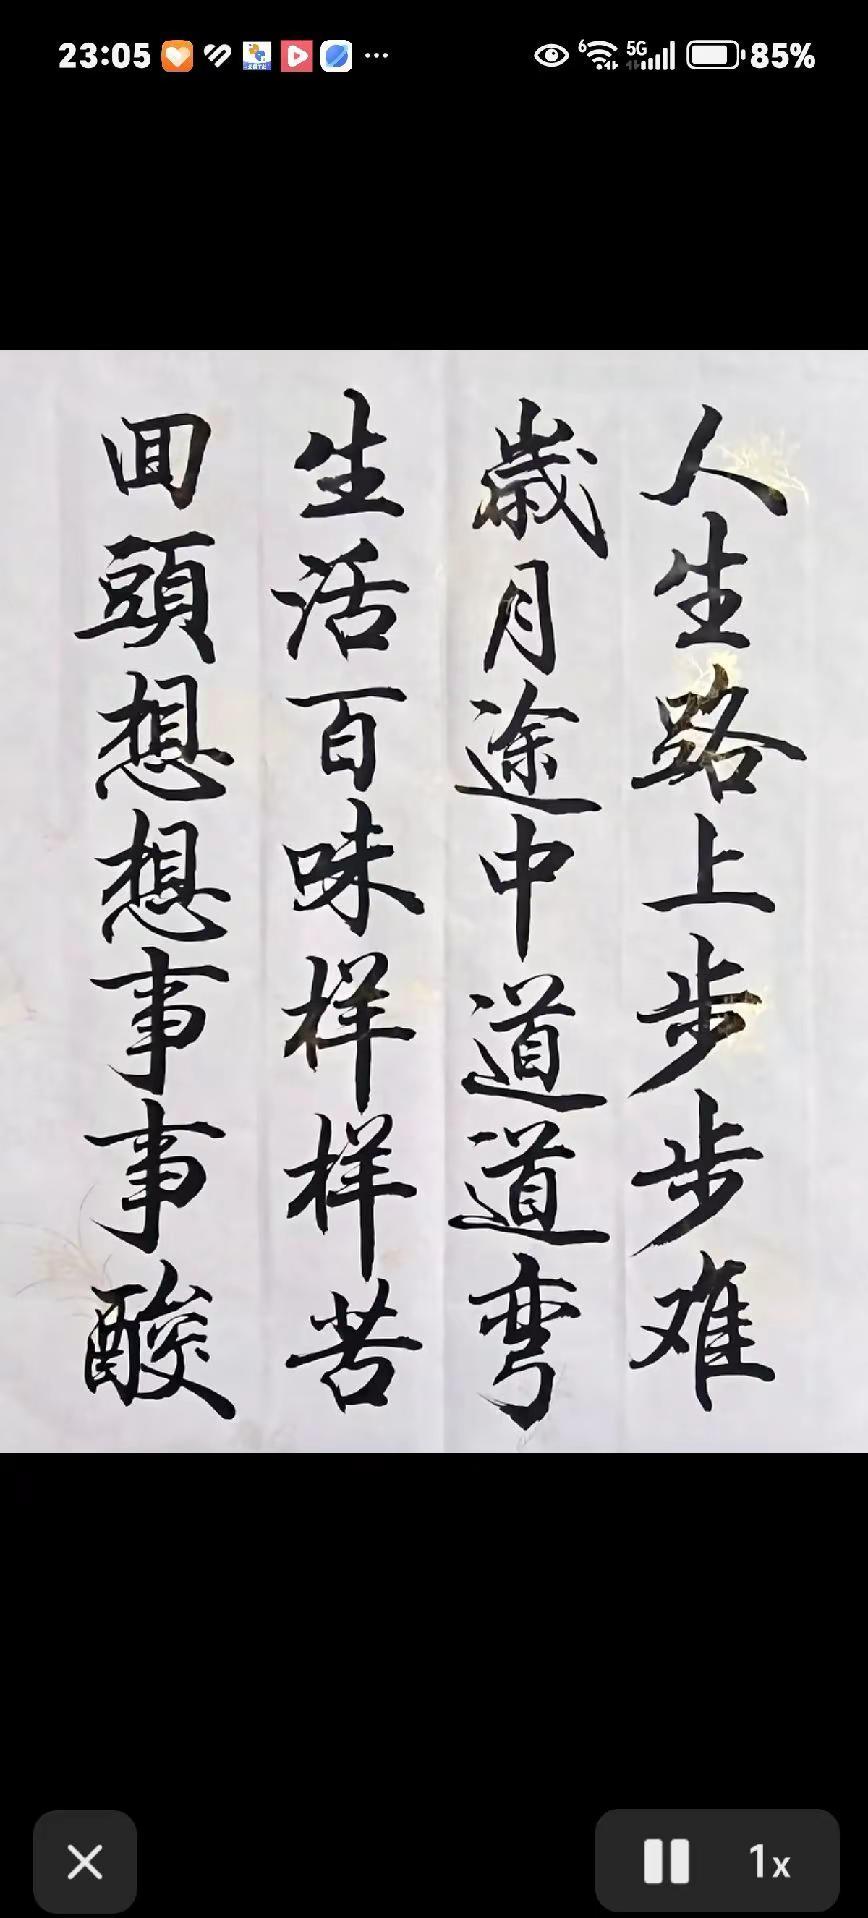 23:05 ... 6 5G 85%
人生路上步步难
歳月途中道道弯
生活百味样样苦
囬頭想想事事酸
1x